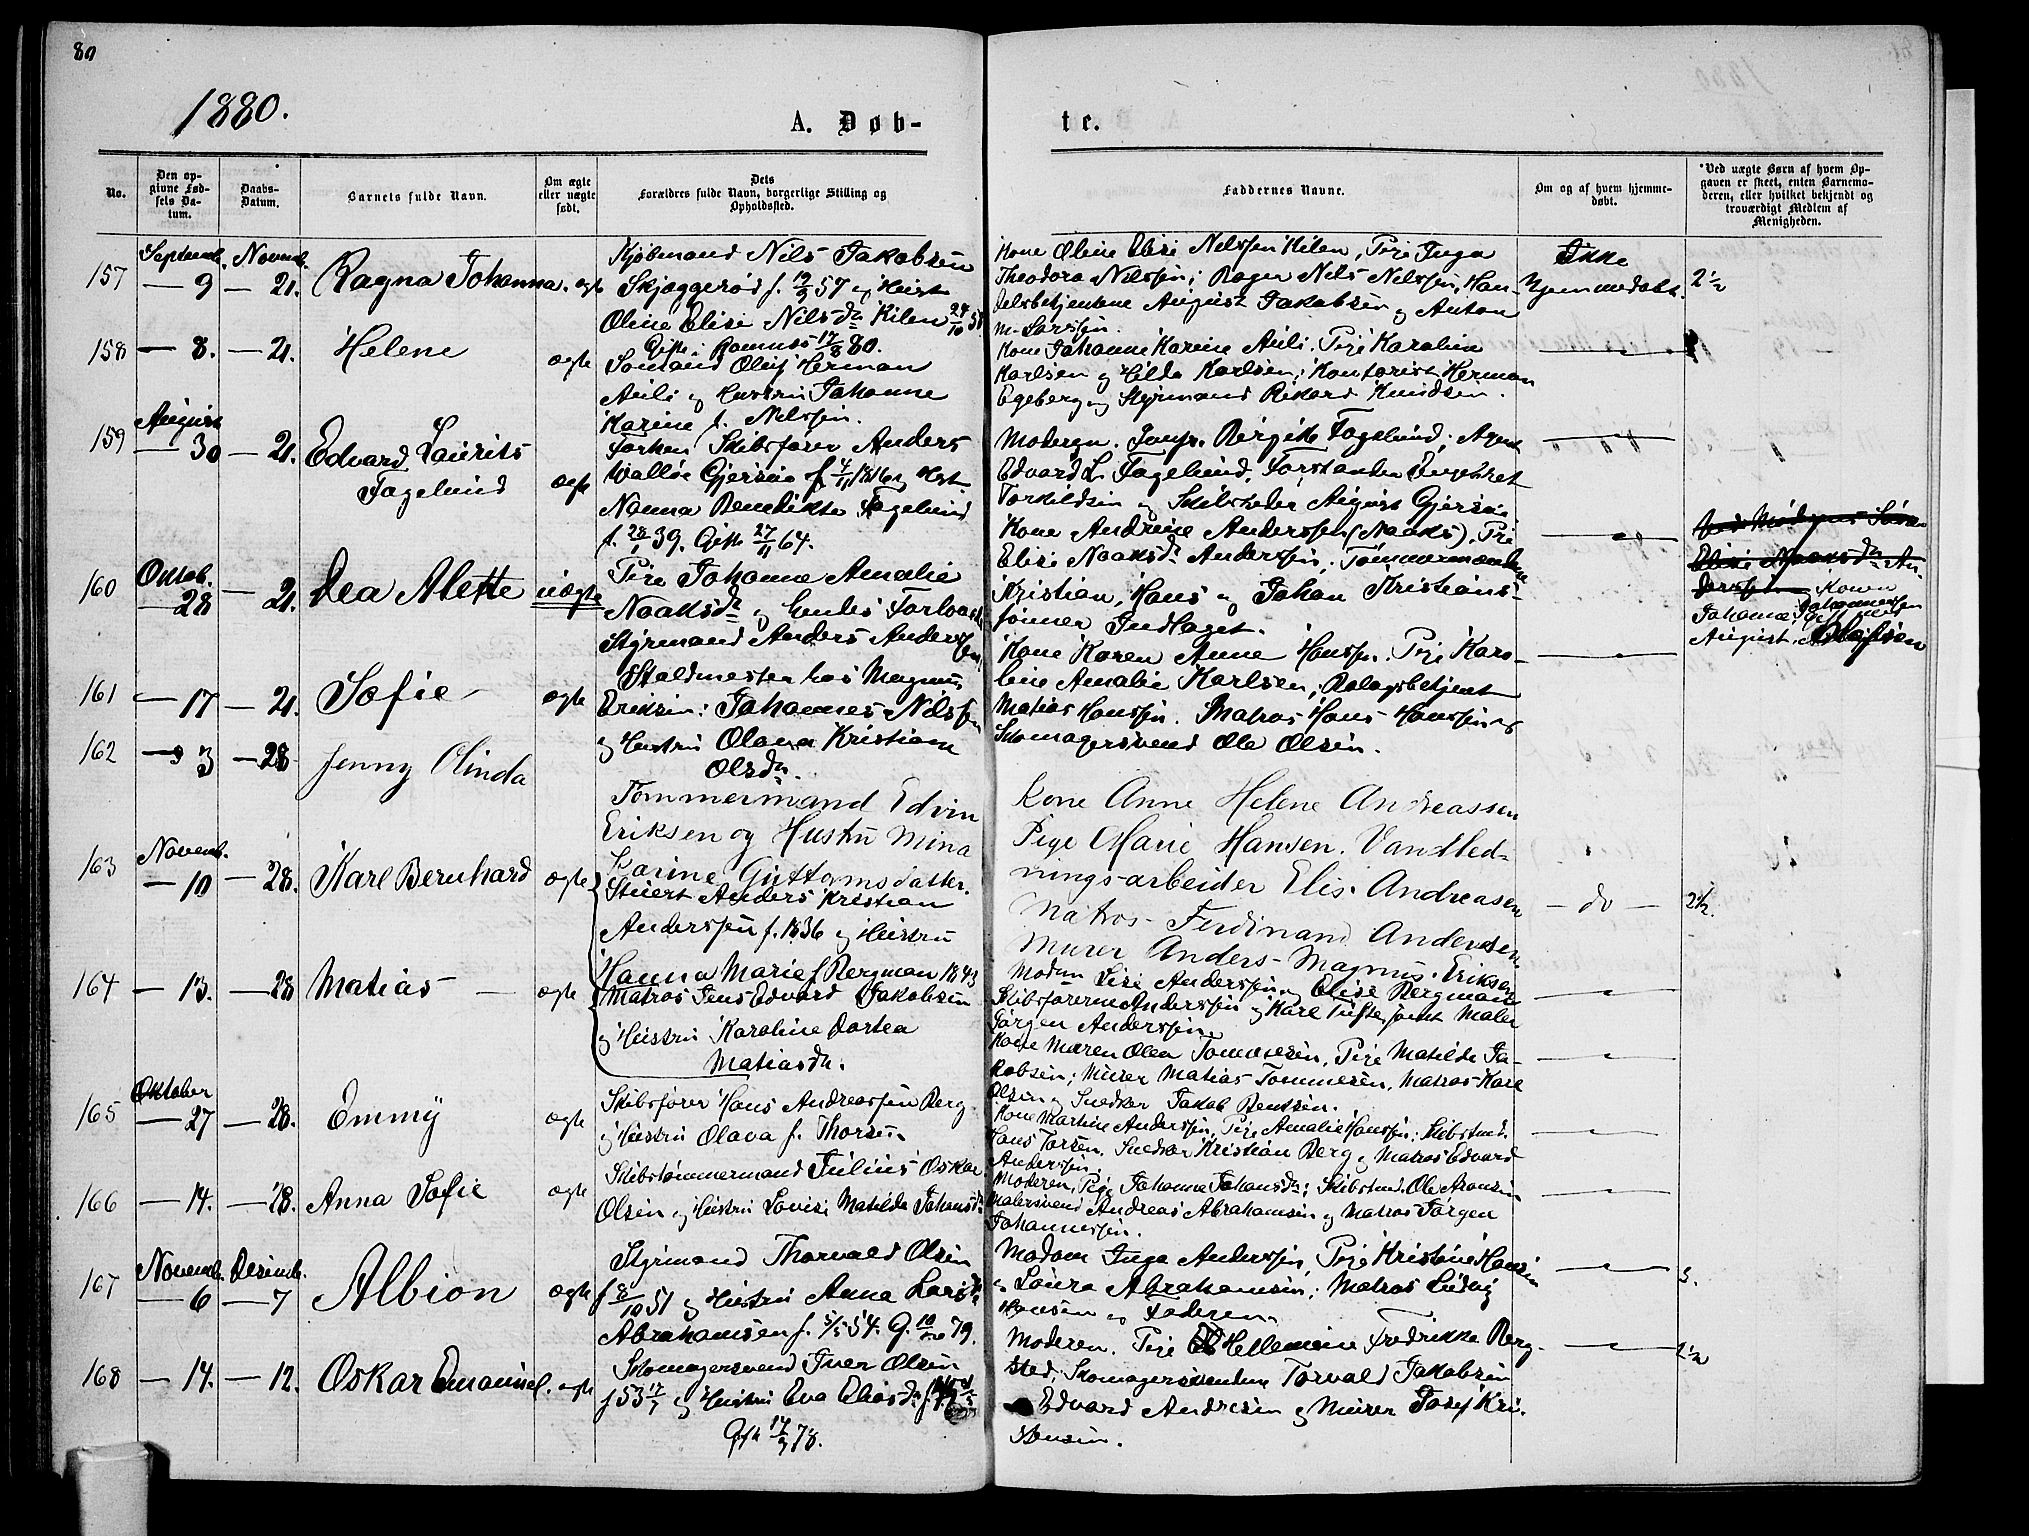 80
1880.
A. Døb-
te.
No.
Den op-
givne Fød-
sels Da-
tum.
Daabs-
Datum.
Barnets fulde Navn.
Om ægte
eller uægte
født.
Dets
Forældres fulde Navn, borgerlige Stilling og
Opholdssted.
Faddernes Navne.
Om og af hvem hjemme-
døbt.
*Ved uægte Børn af hvem Op-
gaven er skeet, enten Barnemo-
deren, eller hvilket bekjendt og
troværdigt Medlem af
Menigheden.
157
Septemb.
— 9
Novemb.
— 21.
Ragna Johanna.
ægte
Kjøbmand Nils Jakobsen
Skjæggerød f. 19/9 57 og Hust
Oline Elise Nilsdr Kilen 24/10 58
Gifte i Ramnes 17/8 80.
Kone Oline Elise Nelssen Kilen, Pige Inga
Theodora Nilssen; Nils Nelssen, Han-
delsbetjentene August Jakobsen og Anton
M. Larssen.
Ikke
hjemmedøbt.
2 1/2
158
— 8.
— 21.
Helene
ægte
Sømand Oluf Herman
Auli og Hustru Johanne
Karine f. Nilssen.
Kone Johanne Karine Auli. Pige Karoline
Karlsen og Hilda Karlsen; Kontorist Herman
Egeberg og Styrmand Rikard Knudsen.
159
August
— 30
— 21.
Edvard Laurits
Fagelund
ægte
Forhen Skibsfører Anders
Walløe Gjersøe f. 4/11 1816 og Hust.
Nanna Benedikte Fagelund
f. 28/1 39. Gifte 27/11 64.
Moderen. Jomfr. Birgitte Fagelund; Agent
Edvard L. Fagelund. Forstander Engebret
Torkildsen og Skibsreder August Gjersøe
160
Oktob.
— 28
— 21.
Dea Alette
uægte
Pige Johanne Amalie
Noaksdr og
Styrmand Anders Anderssen
Kone Andrine Anderssen (Noaks). Pige
Elise Noaksdr Anderssen. Tømmermændene
Kristian, Hans og Johan Kristians-
sønner Indlaget.
Elise Noaksdr An-
derssen Konen
Johanne Johannessen
August Olafsen
161
— 17
— 21.
Sofie
ægte
Staldmester hos Magnus
Eriksen: Johannes Nilssen
og Hustru Olava Kristiane
Olsdr.
Kone Karen Anne Hanssen. Pige Karo-
line Amalie Karlsen; Bolagsbetjent
Matias Hanssen. Matros Hans Hanssen og
Skomagersvend Ole Olsen.
162
— 3
— 28
Jenny Olinda
Tømmermand Edvin
Eriksen og Hustru Mina
Karine Guttormsdatter.
Kone Anne Helene Andreassen
Pige Marie Hansen. Vandled-
ningsarbeider Elis. Andreasen
Matros Ferdinand Andersen.
Murer Anders Magnus Eriksen
— do —
2 1/2.
163
Novemb.
— 10
— 28.
Karl Bernhard
ægte
Stuert Anders Kristian
Anderssen f. 1836 og Hustru
Hanna Marie f. Bergman 1843
Madam Lise Anderssen og Elise Bergman
Skibsførerne Anderssen og Karl Tufte samt Maler
Jørgen Anderssen.
164
— 13.
— 28
Matias
ægte
Matros Jens Edvard Jakobsen
og Hustru Karoline Dortea
Matiasdr.
Kone Maren Olea Tommesen, Pige Matilde Ja-
kobsen; Murer Matias Tommesen, Matros Karl
Olsen og Snedker Jakob Bentsen.
165
Oktober
— 27
— 28.
Emmy
ægte
Skibsfører Hans Andreassen Berg
og Hustru Olava f. Thorsen
Kone Martine Anderssen, Pige Amalie Hanssen; Skibstmd.
Hans Torsen. Snedker Kristian Berg og Matros Edvard
Anderssen.
166
— 14.
— 28.
Anna Sofie
ægte
Skibstømmermand Julius Oskar
Olsen og Hustru Lovise Matilde Johansdr
Moderen, Pige Johanne Johansdr; Skibstmd. Ole Aronsen
Malersvend Andreas Abrahamsen og Matros Jørgen
Johannessen.
167
Novemb.
— 6
Desemb.
— 7
Albion
ægte
Styrmand Thorvald Olsen
f. 8/10 51 og Hustru Anna
Abrahamsen f. 5/5 54. G. 79.
Madam Inga Anderssen, Pige Kristine Hansen
og Laura Abrahamsen; Matros Ludvig
Hansen og Faderen.
3.
168
— 14.
— 12.
Oskar Emanuel.
ægte
Skomagersvend Iver Olsen
f. 53 og Hustru Eva Eliasdr
Gift 17/9 78.
Moderen. Pige Hellemine Fredrikke Berg-
sted; Skomagersvendene Torvald Jakobsen
Edvard Andresen og Murer Josef Kri-
stensen.
2 1/2